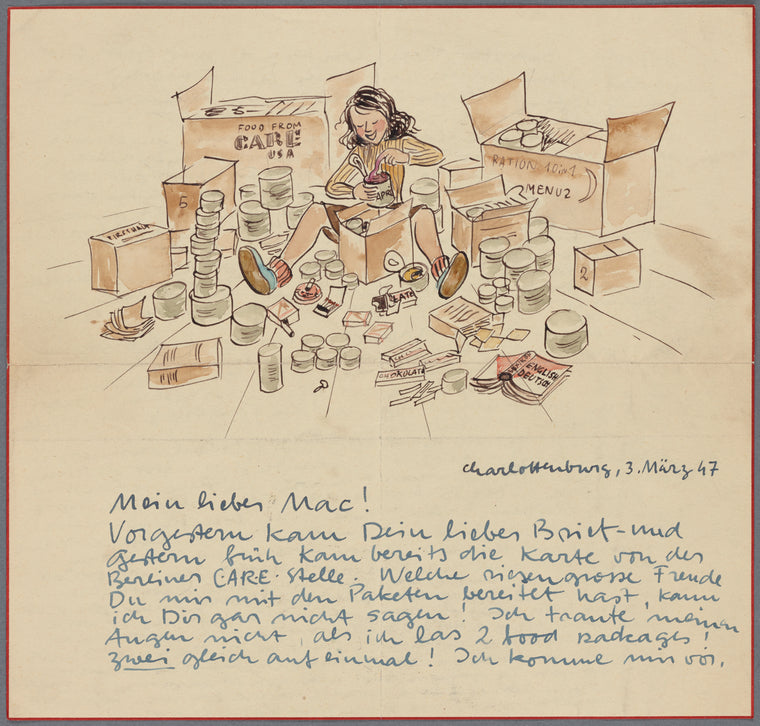 FOOD FROM
CARE
USA
RATION 10in1
MENU 2
5
2
APRI
MEAT
CHOKOLATE
ENGLISH
DEUTSCH
Charlottenburg, 3. März 47
Mein lieber Mac!
Vorgestern kam Dein lieber Brief – und
gestern früh kam bereits die Karte von der
Berliner CARE-Stelle. Welche riesengrosse Freude
Du mir mit den Paketen bereitet hast, kann
ich Dir gar nicht sagen! Ich traute meinen
Augen nicht, als ich las 2 food packages!
zwei gleich auf einmal! Ich komme mir vor,